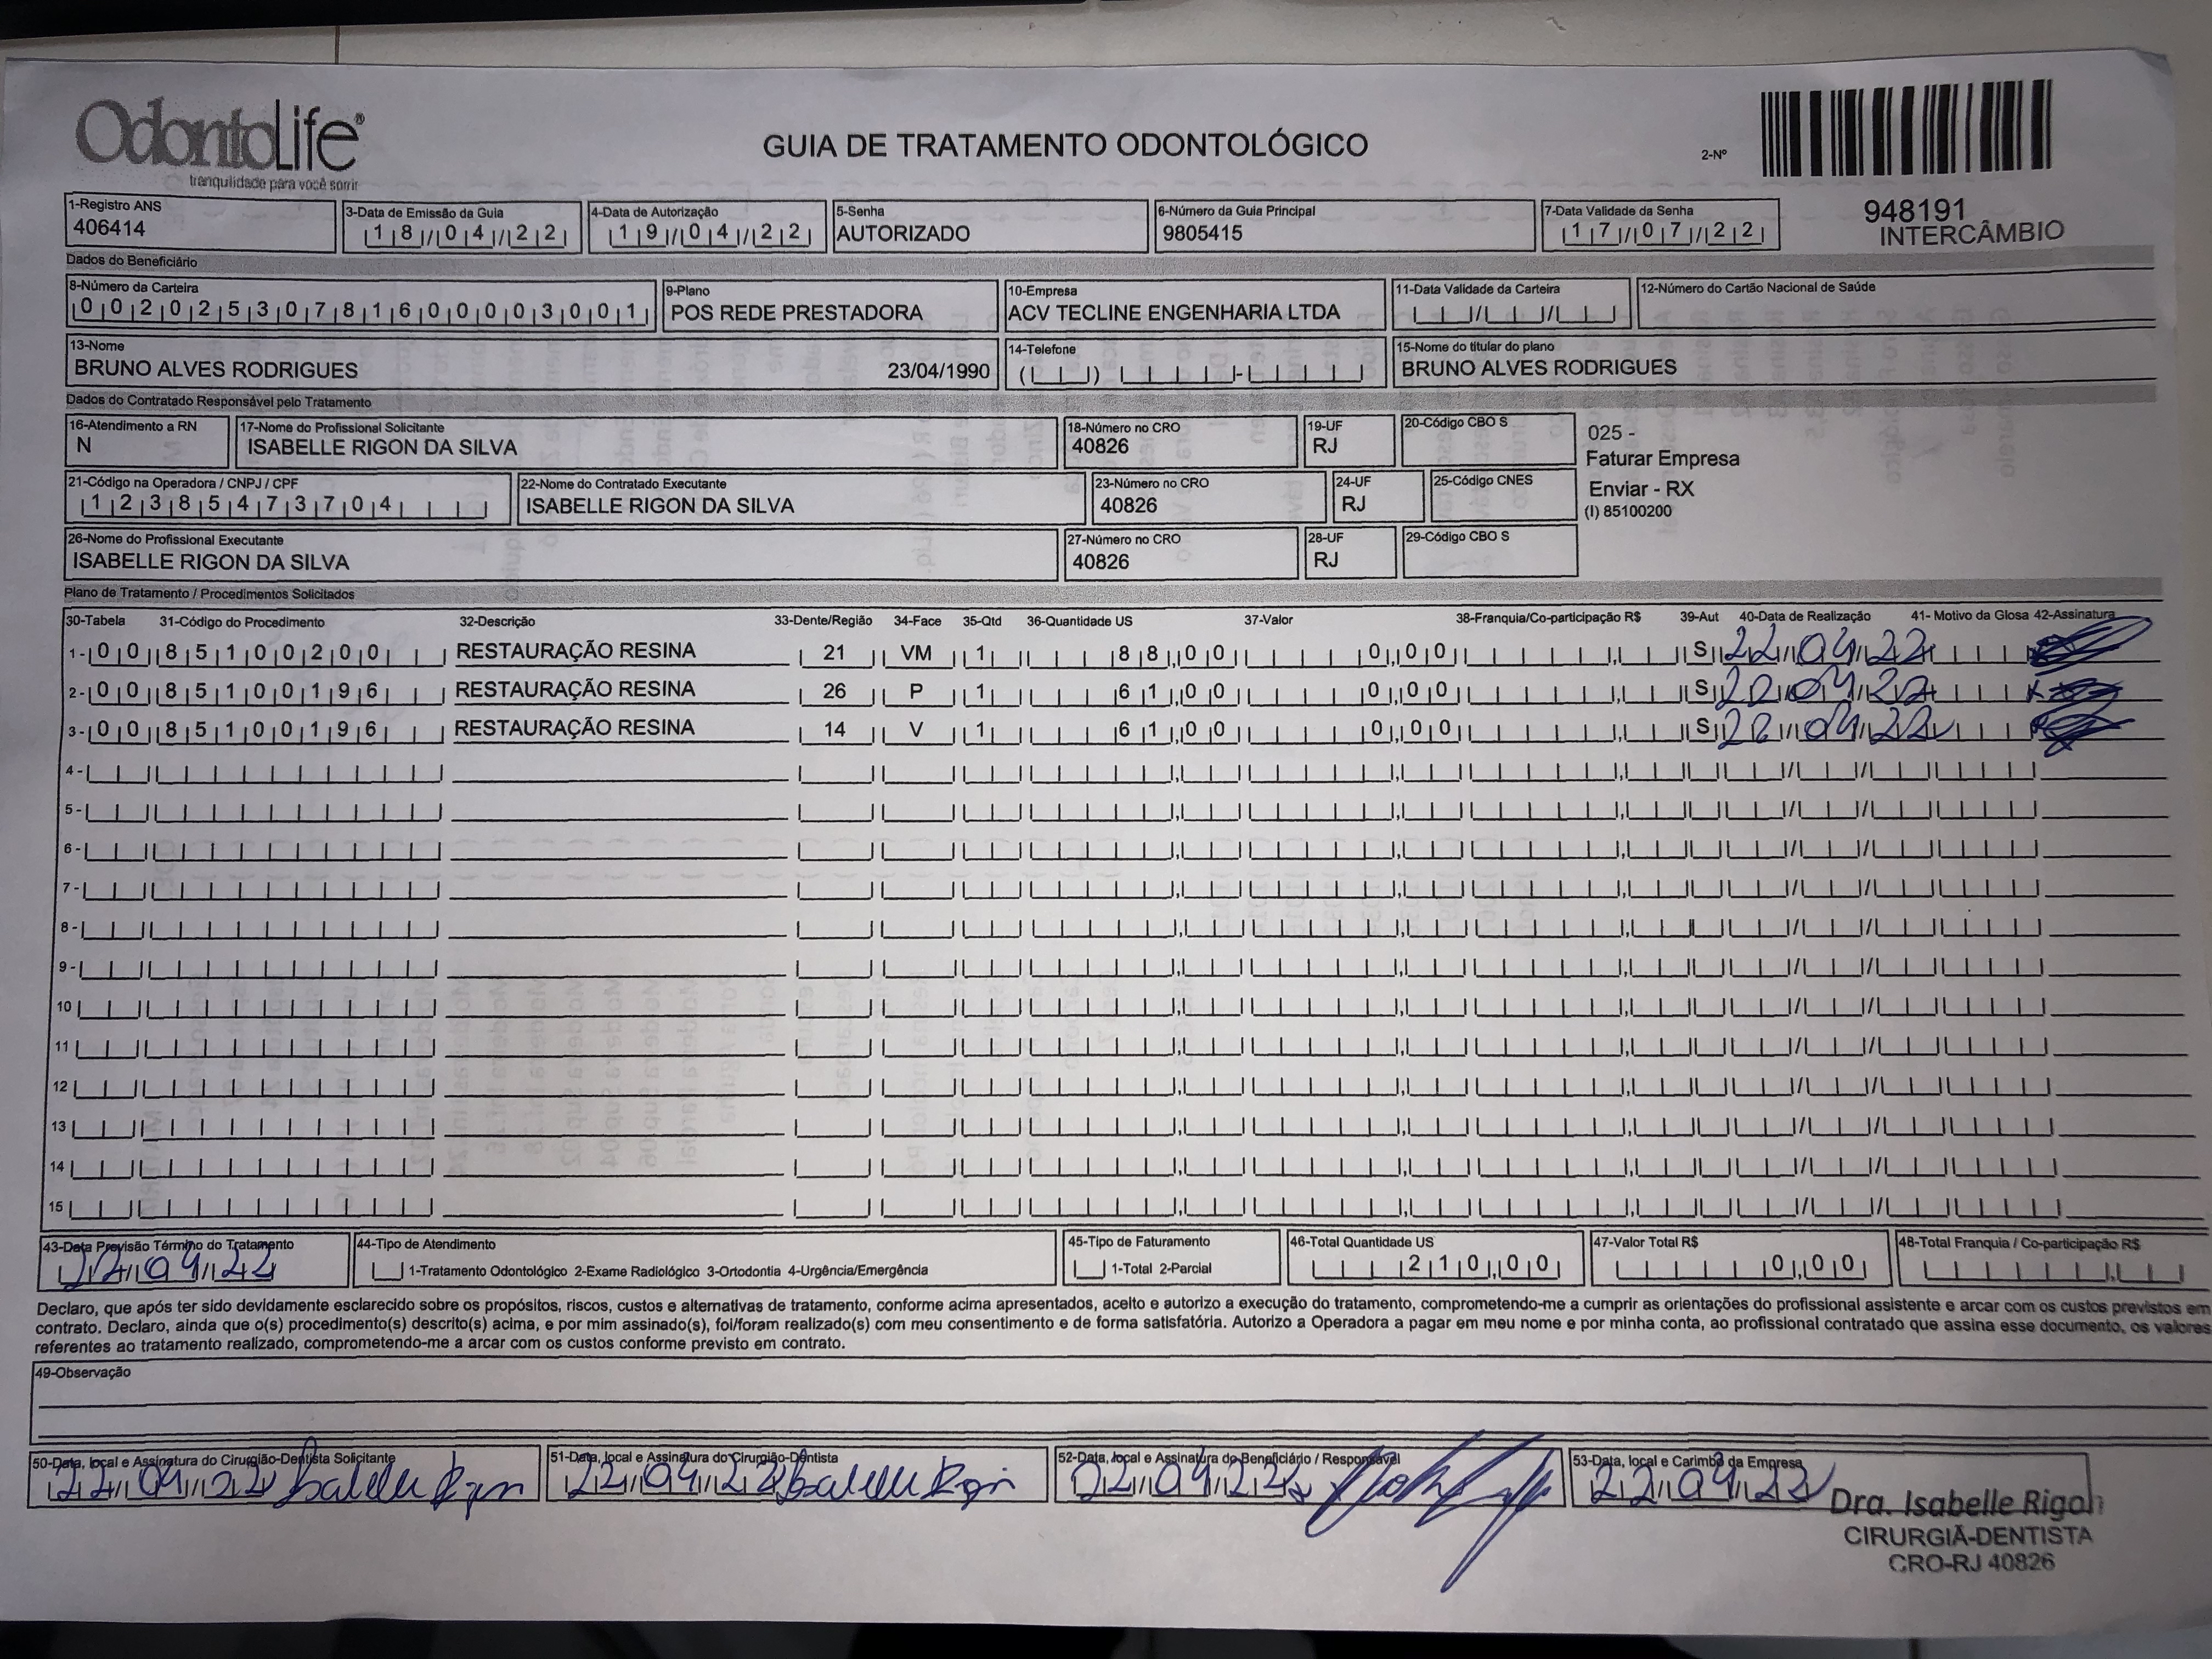 OdontoLife®
tranquilidade para você sorrir
GUIA DE TRATAMENTO ODONTOLÓGICO
2-Nº
948191
INTERCÂMBIO
1-Registro ANS
406414
3-Data de Emissão da Guia
18/04/22
4-Data de Autorização
19/04/22
5-Senha
AUTORIZADO
6-Número da Guia Principal
9805415
7-Data Validade da Senha
17/07/22
Dados do Beneficiário
8-Número da Carteira
00202530781600003001
9-Plano
POS REDE PRESTADORA
10-Empresa
ACV TECLINE ENGENHARIA LTDA
11-Data Validade da Carteira
12-Número do Cartão Nacional de Saúde
13-Nome
BRUNO ALVES RODRIGUES 23/04/1990
14-Telefone
15-Nome do titular do plano
BRUNO ALVES RODRIGUES
Dados do Contratado Responsável pelo Tratamento
16-Atendimento a RN
N
17-Nome do Profissional Solicitante
ISABELLE RIGON DA SILVA
18-Número no CRO
40826
19-UF
RJ
20-Código CBO S
025 -
Faturar Empresa
Enviar - RX
(I) 85100200
21-Código na Operadora / CNPJ / CPF
12385473704
22-Nome do Contratado Executante
ISABELLE RIGON DA SILVA
23-Número no CRO
40826
24-UF
RJ
25-Código CNES
26-Nome do Profissional Executante
ISABELLE RIGON DA SILVA
27-Número no CRO
40826
28-UF
RJ
29-Código CBO S
Plano de Tratamento / Procedimentos Solicitados
30-Tabela 31-Código do Procedimento 32-Descrição 33-Dente/Região 34-Face 35-Qtd 36-Quantidade US 37-Valor 38-Franquia/Co-participação R$ 39-Aut 40-Data de Realização 41- Motivo da Glosa 42-Assinatura
1- 00 85100200 RESTAURAÇÃO RESINA 21 VM 1 88,00 0,00 S 22/04/22
2- 00 85100196 RESTAURAÇÃO RESINA 26 P 1 61,00 0,00 S 22/04/22
3- 00 85100196 RESTAURAÇÃO RESINA 14 V 1 61,00 0,00 S 22/04/22
4-
5-
6-
7-
8-
9-
10
11
12
13
14
15
43-Data Previsão Término do Tratamento
22/04/22
44-Tipo de Atendimento
1-Tratamento Odontológico 2-Exame Radiológico 3-Ortodontia 4-Urgência/Emergência
45-Tipo de Faturamento
1-Total 2-Parcial
46-Total Quantidade US
210,00
47-Valor Total R$
0,00
48-Total Franquia / Co-participação R$
Declaro, que após ter sido devidamente esclarecido sobre os propósitos, riscos, custos e alternativas de tratamento, conforme acima apresentados, aceito e autorizo a execução do tratamento, comprometendo-me a cumprir as orientações do profissional assistente e arcar com os custos previstos em
contrato. Declaro, ainda que o(s) procedimento(s) descrito(s) acima, e por mim assinado(s), foi/foram realizado(s) com meu consentimento e de forma satisfatória. Autorizo a Operadora a pagar em meu nome e por minha conta, ao profissional contratado que assina esse documento, os valores
referentes ao tratamento realizado, comprometendo-me a arcar com os custos conforme previsto em contrato.
49-Observação
50-Data, local e Assinatura do Cirurgião-Dentista Solicitante
22/04/22 Isabelle Rigon
51-Data, local e Assinatura do Cirurgião-Dentista
22/04/22 Isabelle Rigon
52-Data, local e Assinatura do Beneficiário / Responsável
22/04/22
53-Data, local e Carimbo da Empresa
22/04/22
Dra. Isabelle Rigon
CIRURGIÃ-DENTISTA
CRO-RJ 40826